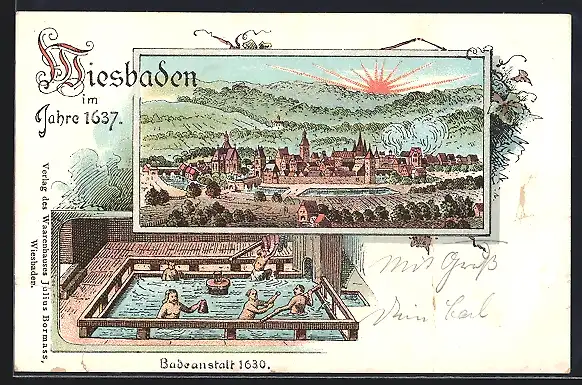 Wiesbaden
im
Jahre 1637.
Verlag des Waarenhauses Julius Bormass,
Wiesbaden.
Mit Gruß
Dein Carl
Badeanstalt 1630.